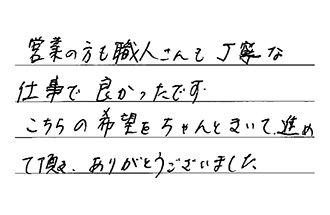 営業の方も職人さんも丁寧な
仕事で良かったです。
こちらの希望をちゃんときいて、進め
て頂き、ありがとうございました。